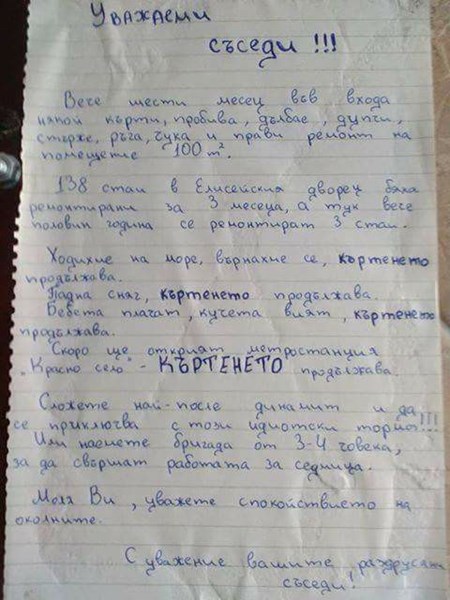 Уважаеми
съседи !!!
Вече шести месец във входа
някой кърти, пробива, дълбае, дупчи,
стърже, ръга, чука и прави ремонт на
помещение 100 m².
138 стаи в Елисейския дворец бяха
ремонтирани за 3 месеца, а тук вече
половин година се ремонтират 3 стаи.
Ходихме на море, върнахме се, къртенето
продължава.
Падна сняг, къртенето продължава.
Бебета плачат, кучета вият, къртенето
продължава.
Скоро ще открият метростанция
„Красно село" - КЪРТЕНЕТО продължава.
Сложете най-после динамит и да
се приключва с този идиотски тормоз!!!
Или наемете бригада от 3-4 човека,
за да свършат работата за седмица.
Моля Ви, уважете спокойствието на
околните.
С уважение вашите раздрусани
съседи!